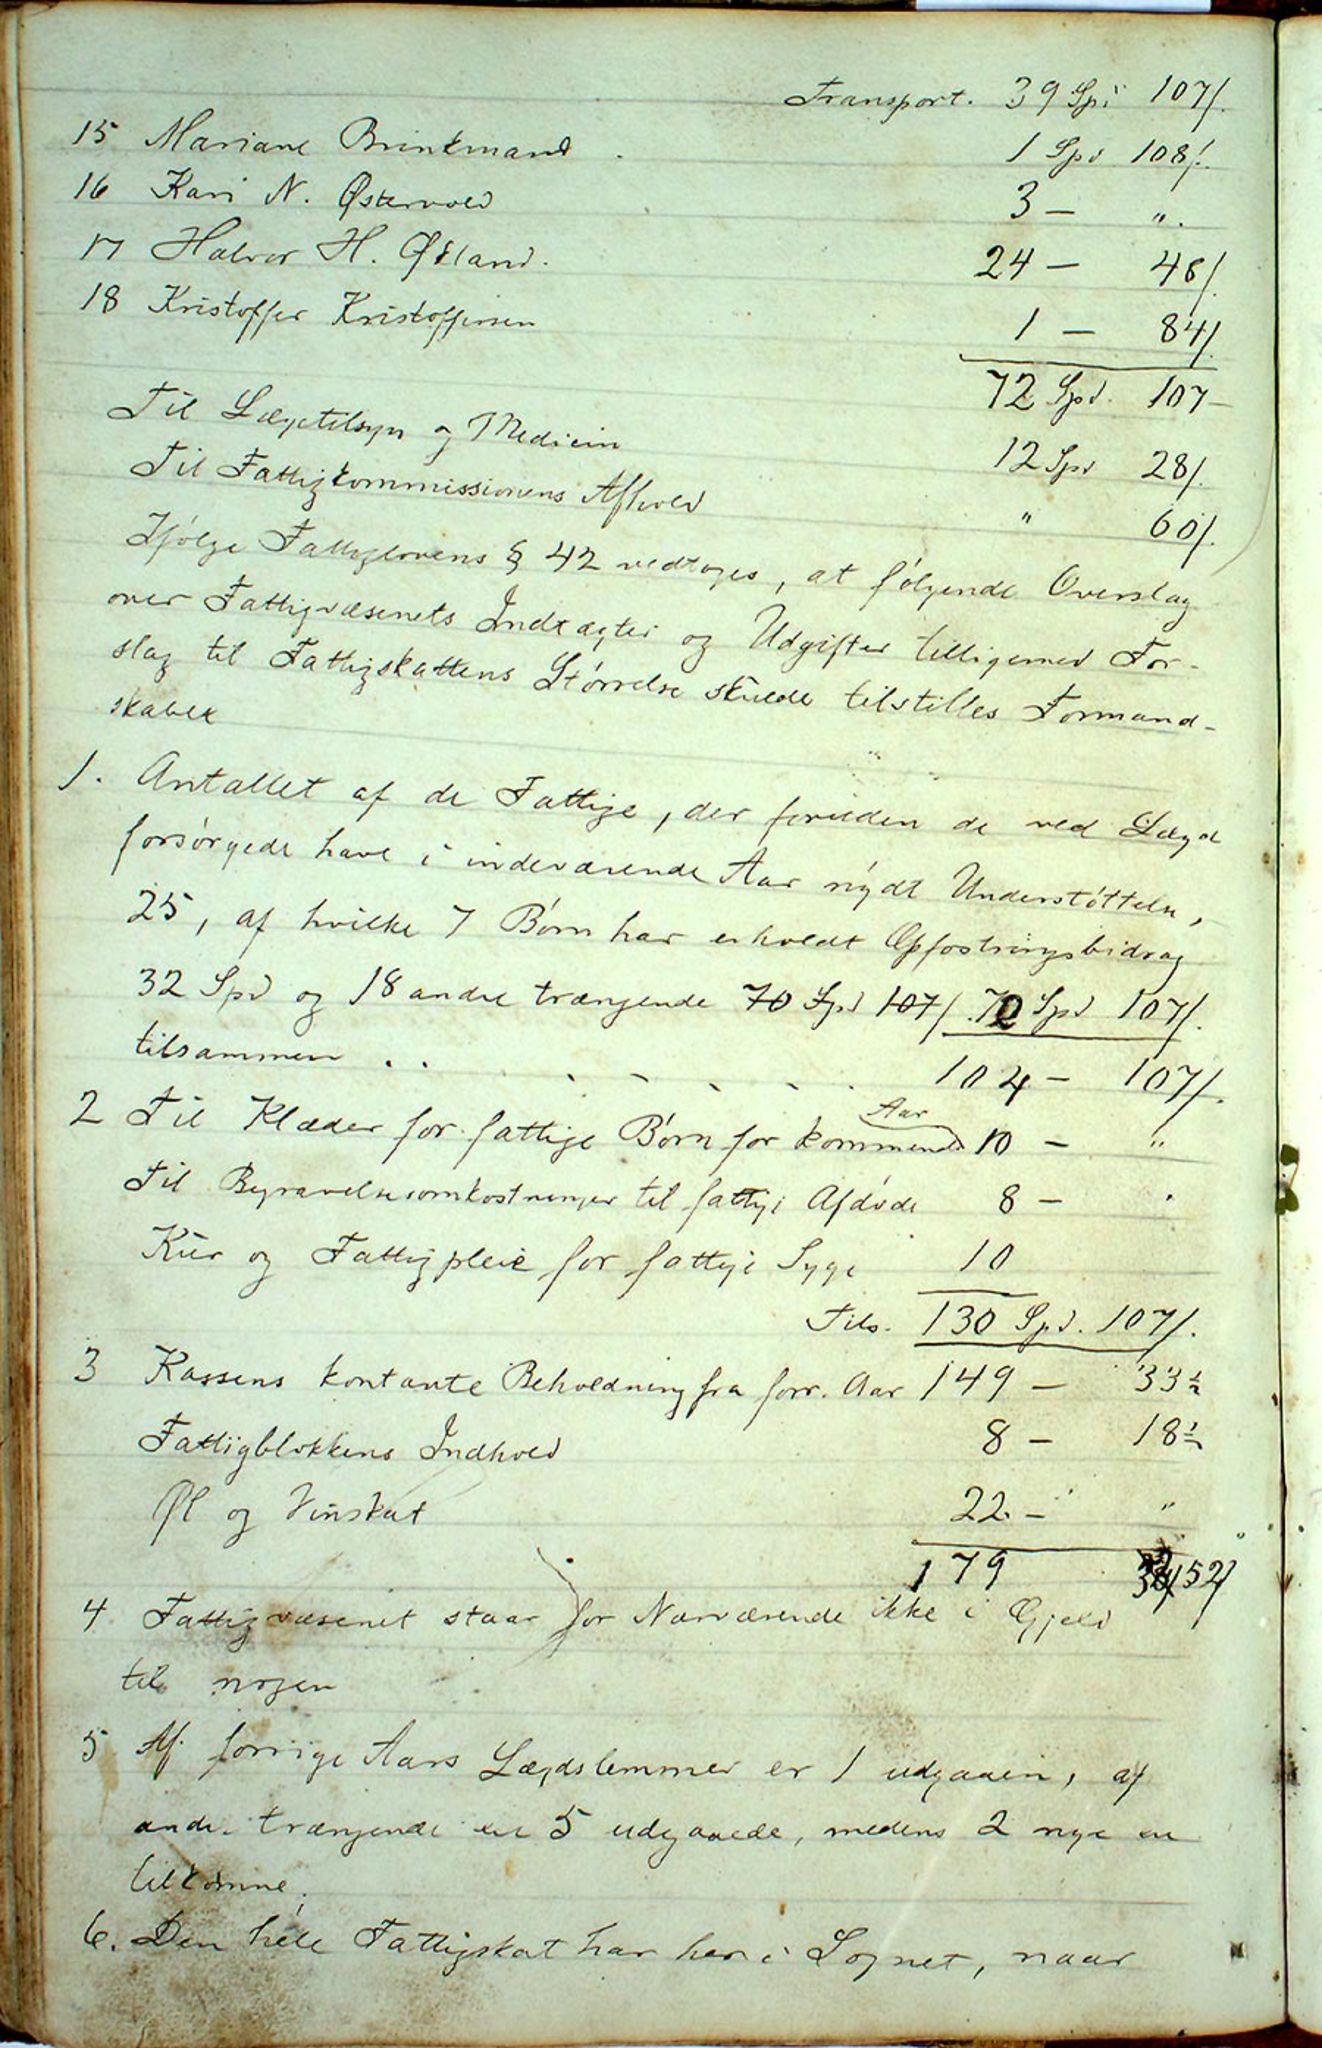 Transport. 39 Spd 107/.
15 Mariane Brinkmand . 1 Spd 108/.
16 Kari N. Østervold 3 — ".
17 Halvor H. Økland. 24 — 48/.
18 Kristoffer Kristoffersen 1 — 84/.
72 Spd. 107—
Til Lægetilsyn og Medicin 12 Spd 28/.
Til Fattigkommissionens Afhold " 60/.
Ifølge Fattiglovens § 42 vedtoges, at følgende Overslag
over Fattigvæsenets Indtægter og Udgifter tilligemed For-
slag til Fattigskattens Størrelse skulde tilstilles Formand-
skabet
1. Antallet af de Fattige, der foruden de ved Lægd
forsørgede have i indeværende Aar nydt Understøttelse,
25, af hvilke 7 Børn har erholdt Opfostringsbidrag
32 Spd og 18 andre trængende 70 Spd 107/. 72 Spd 107/.
tilsammen . . . . . . . 104 — 107/.
2 Til Klæder for fattige Børn for kommende Aar 10 — "
Til Begravelsesomkostninger til fattige Afdøde 8 — "
Kur og Fattigpleie for fattige Syge 10
Tils. 130 Spd. 107/.
3 Kassens kontante Beholdning fra forr. Aar 149 — 33½
Fattigblokkens Indhold 8 — 18½
Øl og Vinskat 22. — "
179 52/
4 Fattigvæsenet staar for Nærværende ikke i Gjeld
til nogen
5 Af forrige Aars Lægdslemmer er 1 udgaaen, af
andre trængende ere 5 udgaaede, medens 2 nye ere
tilkomne.
6. Den hele Fattigskat har her i Sognet, naar